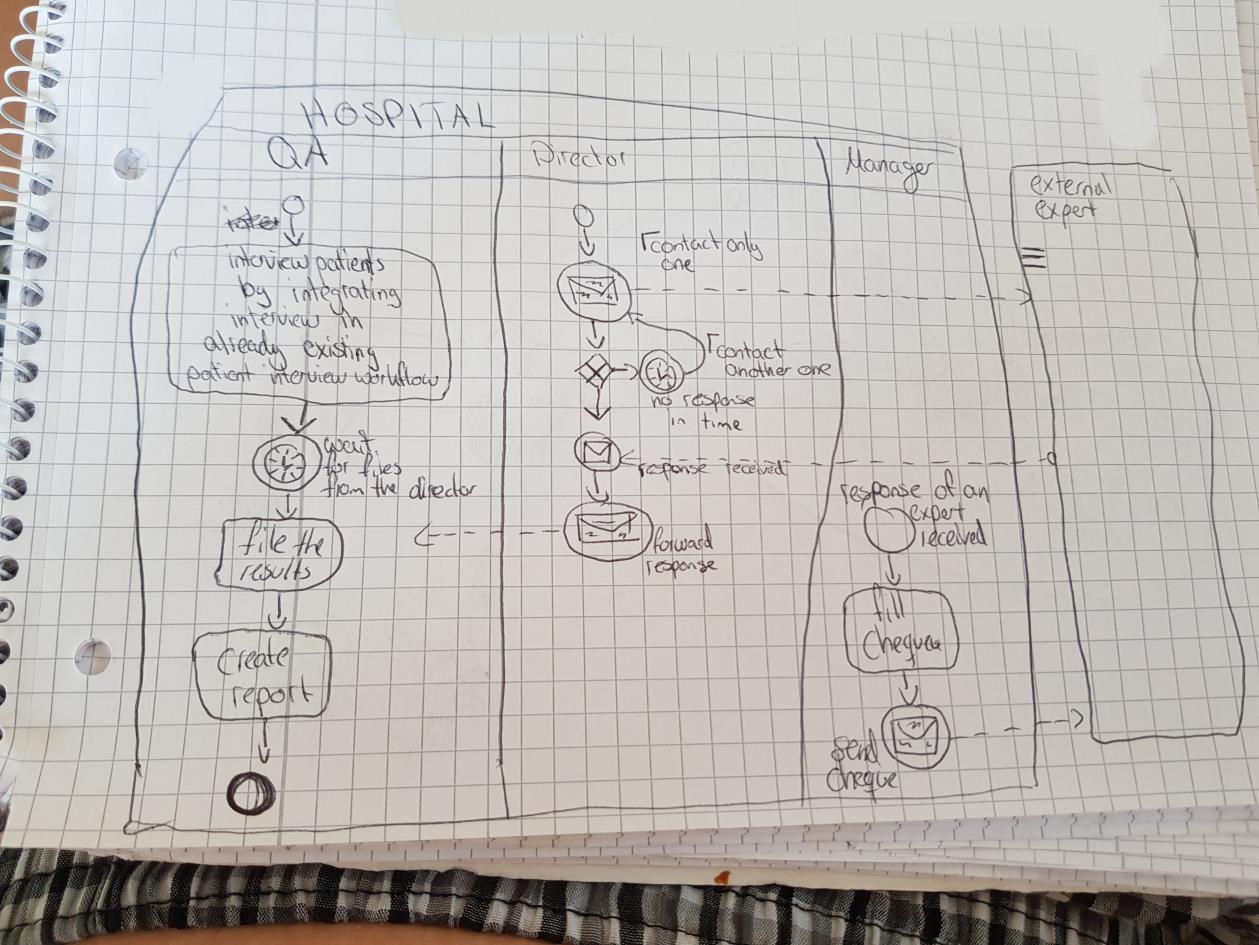 HOSPITAL
QA
Director
Manager
external
expert
interview patients
by integrating
interview in
already existing
patient interview workflow
wait
for files
from the director
file the
results
Create
report
contact only
one
contact
another one
no response
in time
response received
forward
response
response of an
expert
received
fill
cheque
send
cheque